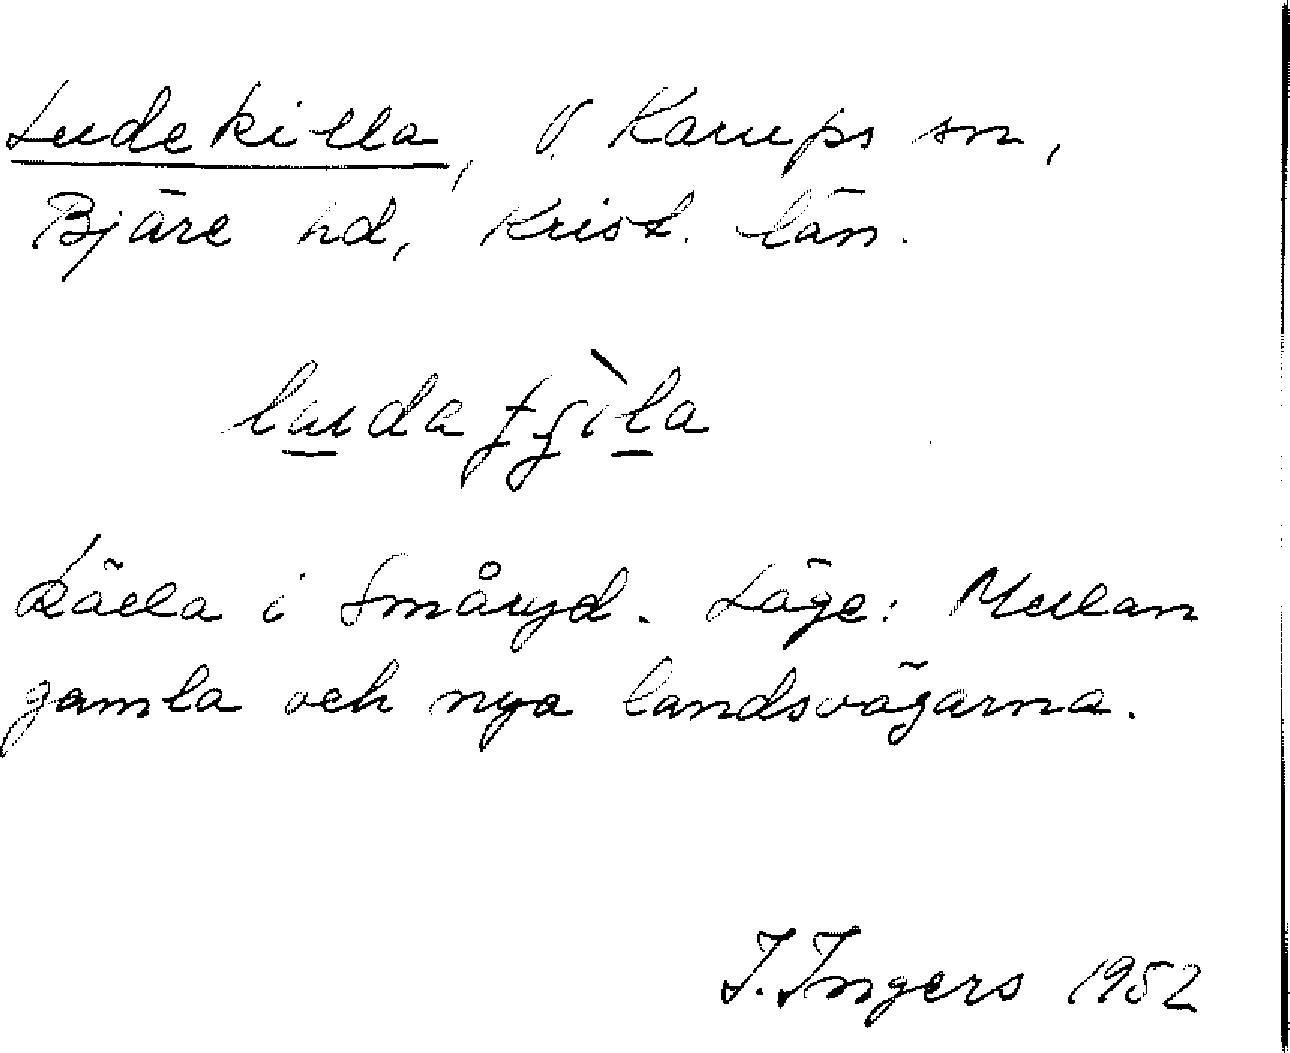 Ludekilla, V. Karups sn,
Bjäre hd, Krist. län.
Källa i Småryd. Läge: Mellan
gamla och nya landsvägarna.
I. Ingers 1952